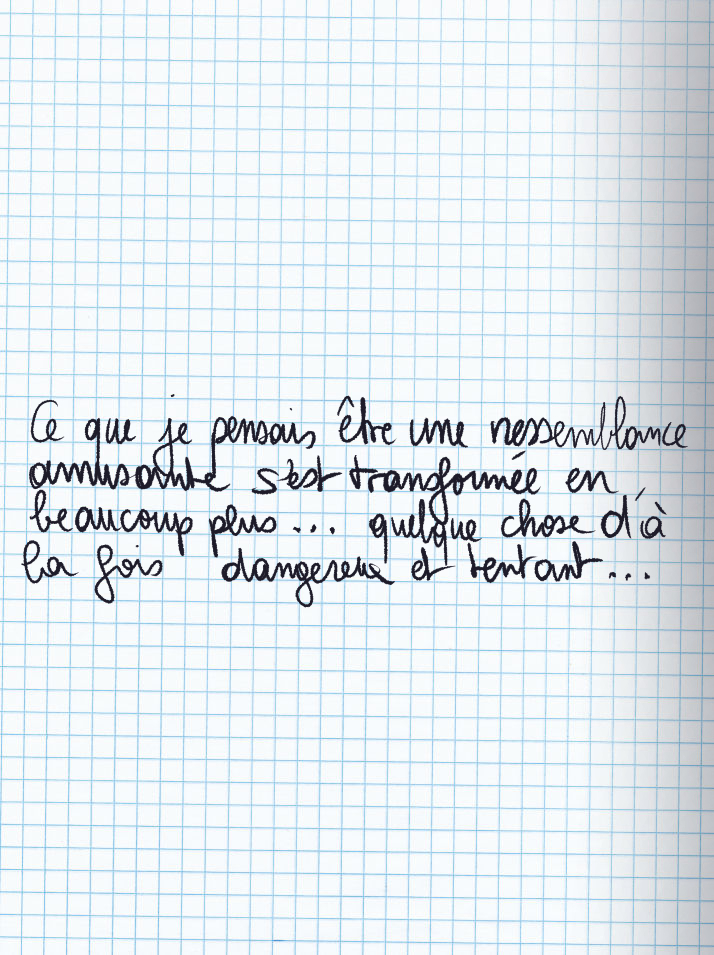 Ce que je pensais être une ressemblance
amusante s'est transformée en
beaucoup plus... quelque chose d'à
la fois dangereux et tentant...